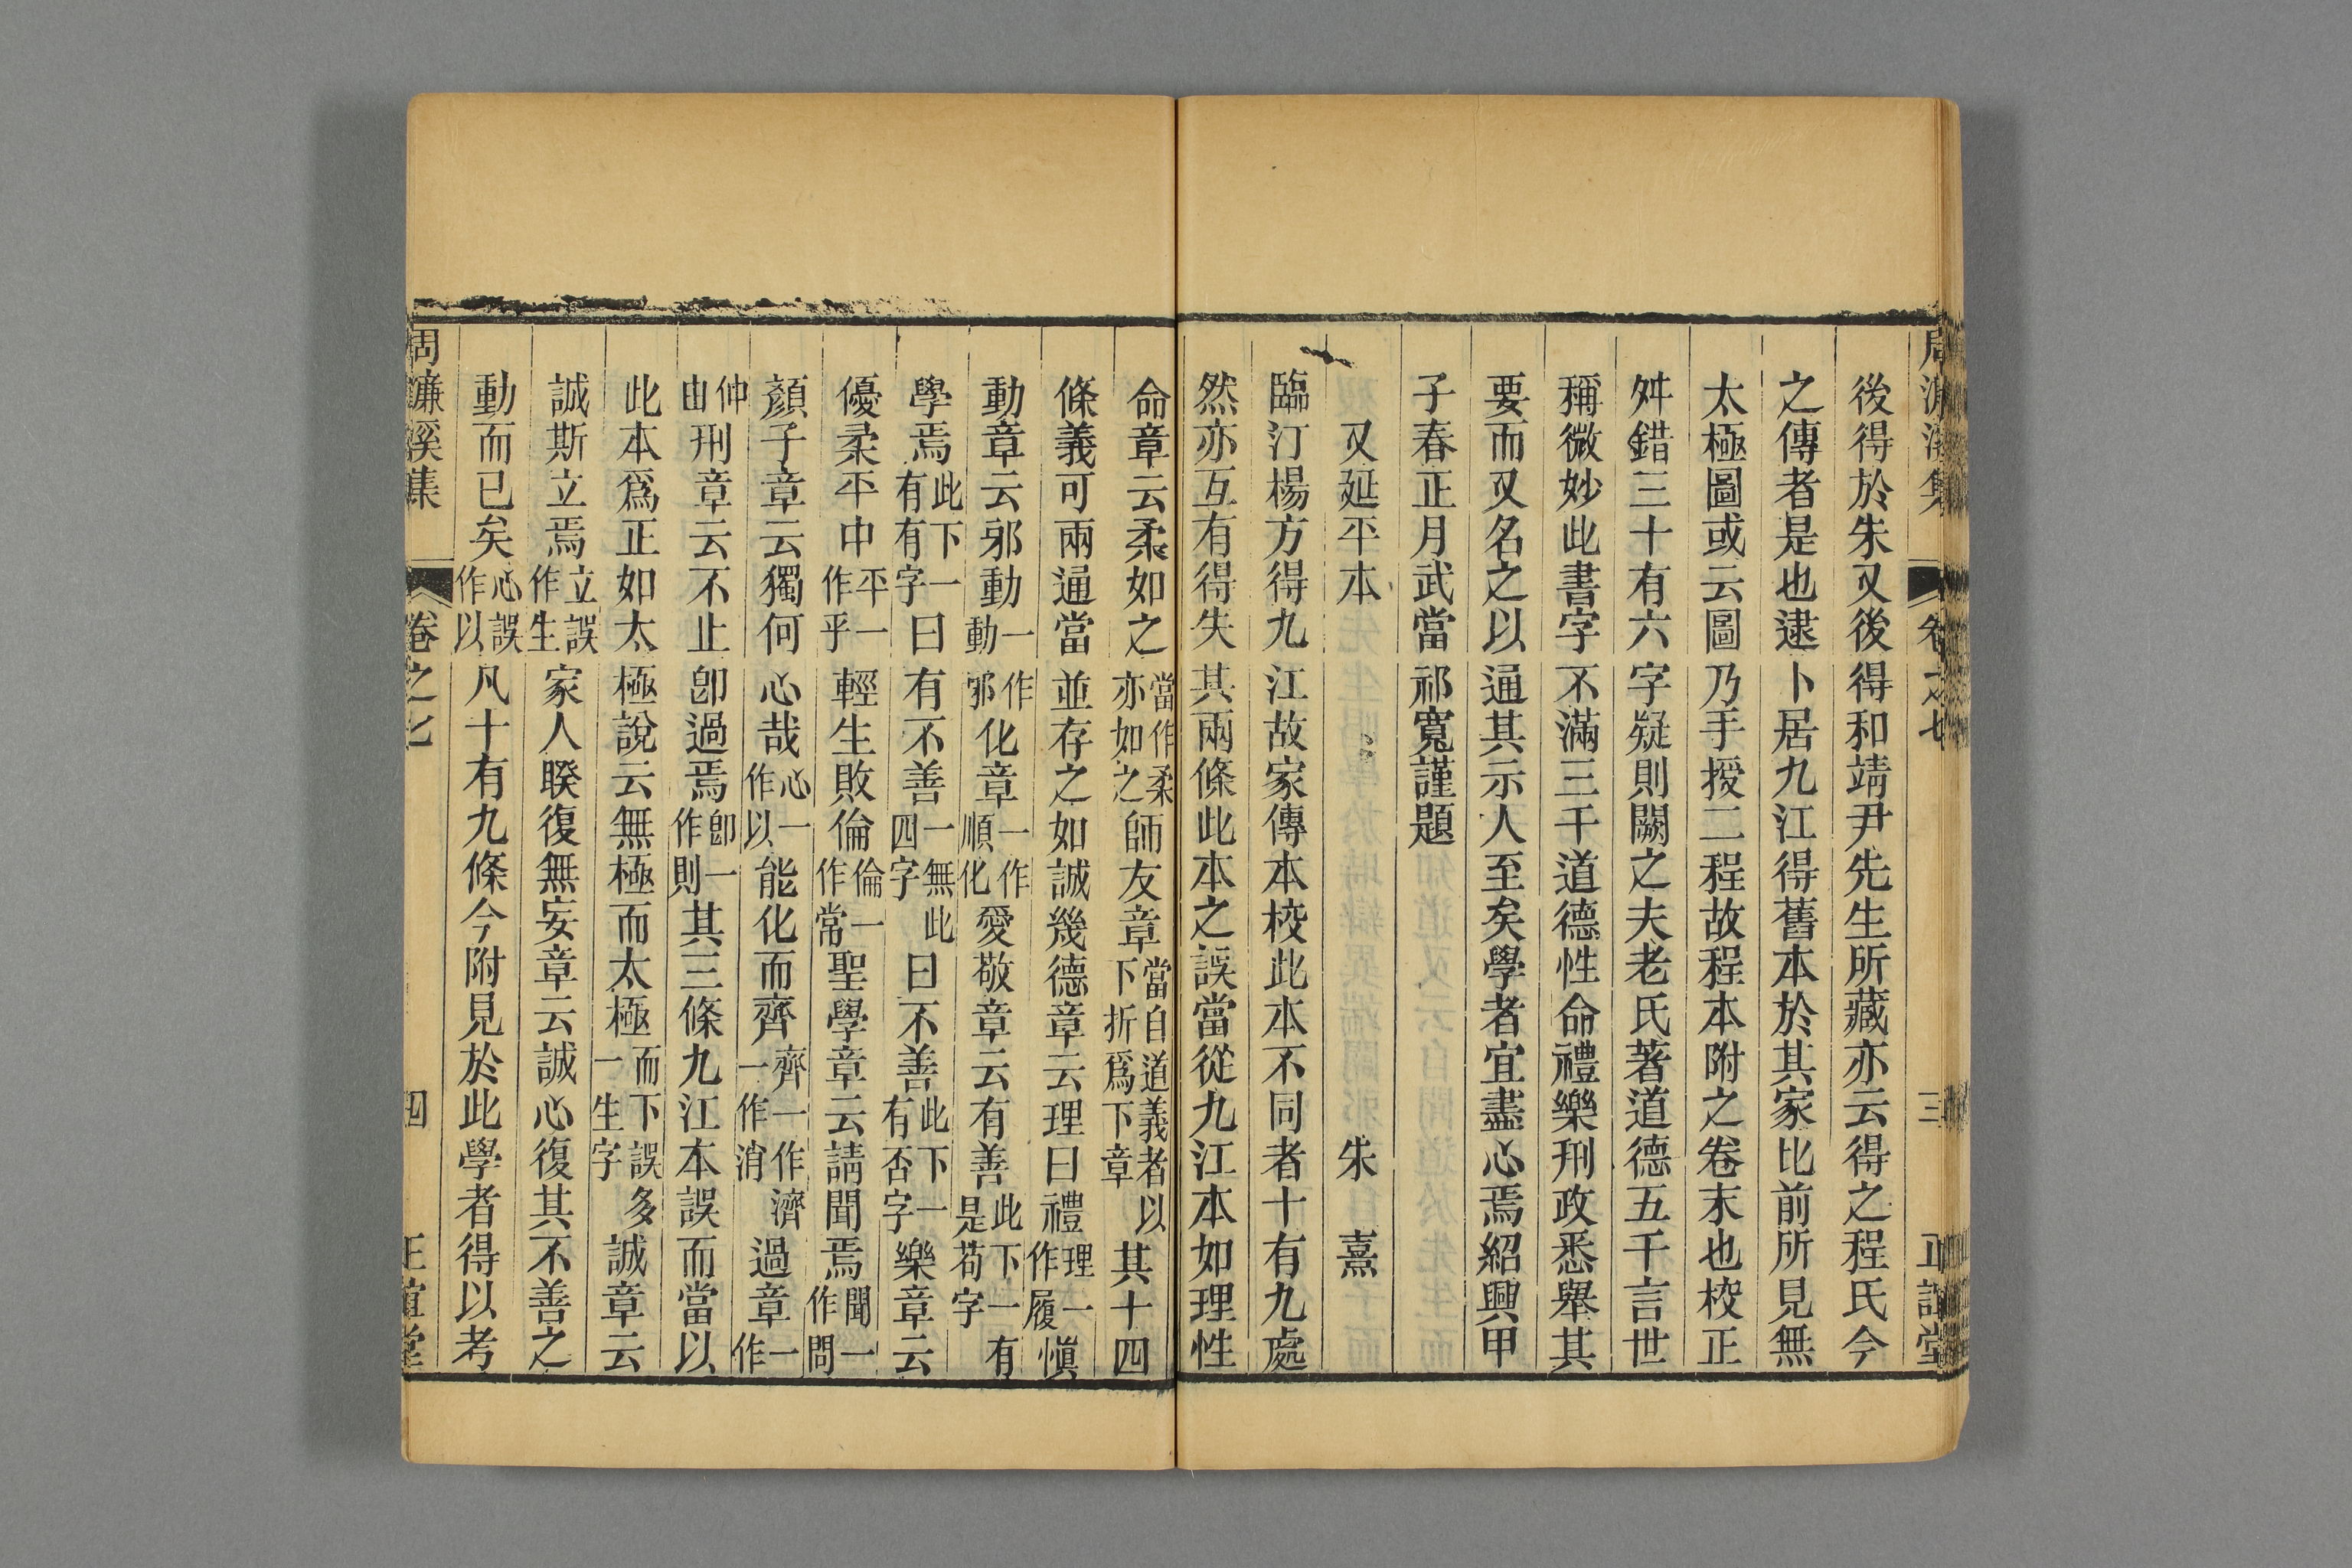 周濂溪集 卷之七 三 正誼堂
後得於朱又後得和靖尹先生所藏亦云得之程氏今
之傳者是也逮卜居九江得舊本於其家比前所見無
太極圖或云圖乃手授二程故程本附之卷末也校正
舛錯三十有六字疑則闕之夫老氏著道德五千言世
稱微妙此書字不滿三千道德性命禮樂刑政悉舉其
要而又名之以通其示人至矣學者宜盡心焉紹興甲
子春正月武當祁寬謹題
又延平本 朱熹
臨汀楊方得九江故家傳本校此本不同者十有九處
然亦互有得失其兩條此本之誤當從九江本如理性
命章云柔如之當作柔亦如之師友章當自道義者以下折爲下章其十四
條義可兩通當並存之如誠幾德章云理曰禮理一作履慎
動章云邪動一作動邪化章一作順化愛敬章云有善此下一有是苟字
學焉此下一有有字曰有不善一無此四字曰不善此下一有否字樂章云
優柔平中平一作乎輕生敗倫倫一作常聖學章云請聞焉聞一作問
顏子章云獨何心哉心一作以能化而齊齊一作濟一作消過章一作
仲由刑章云不止卽過焉卽一作則其三條九江本誤而當以
此本爲正如太極說云無極而太極而下誤多一生字誠章云
誠斯立焉立誤作生家人睽復無妄章云誠心復其不善之
動而已矣心誤作以凡十有九條今附見於此學者得以考
周濂溪集 卷之七 四 正誼堂